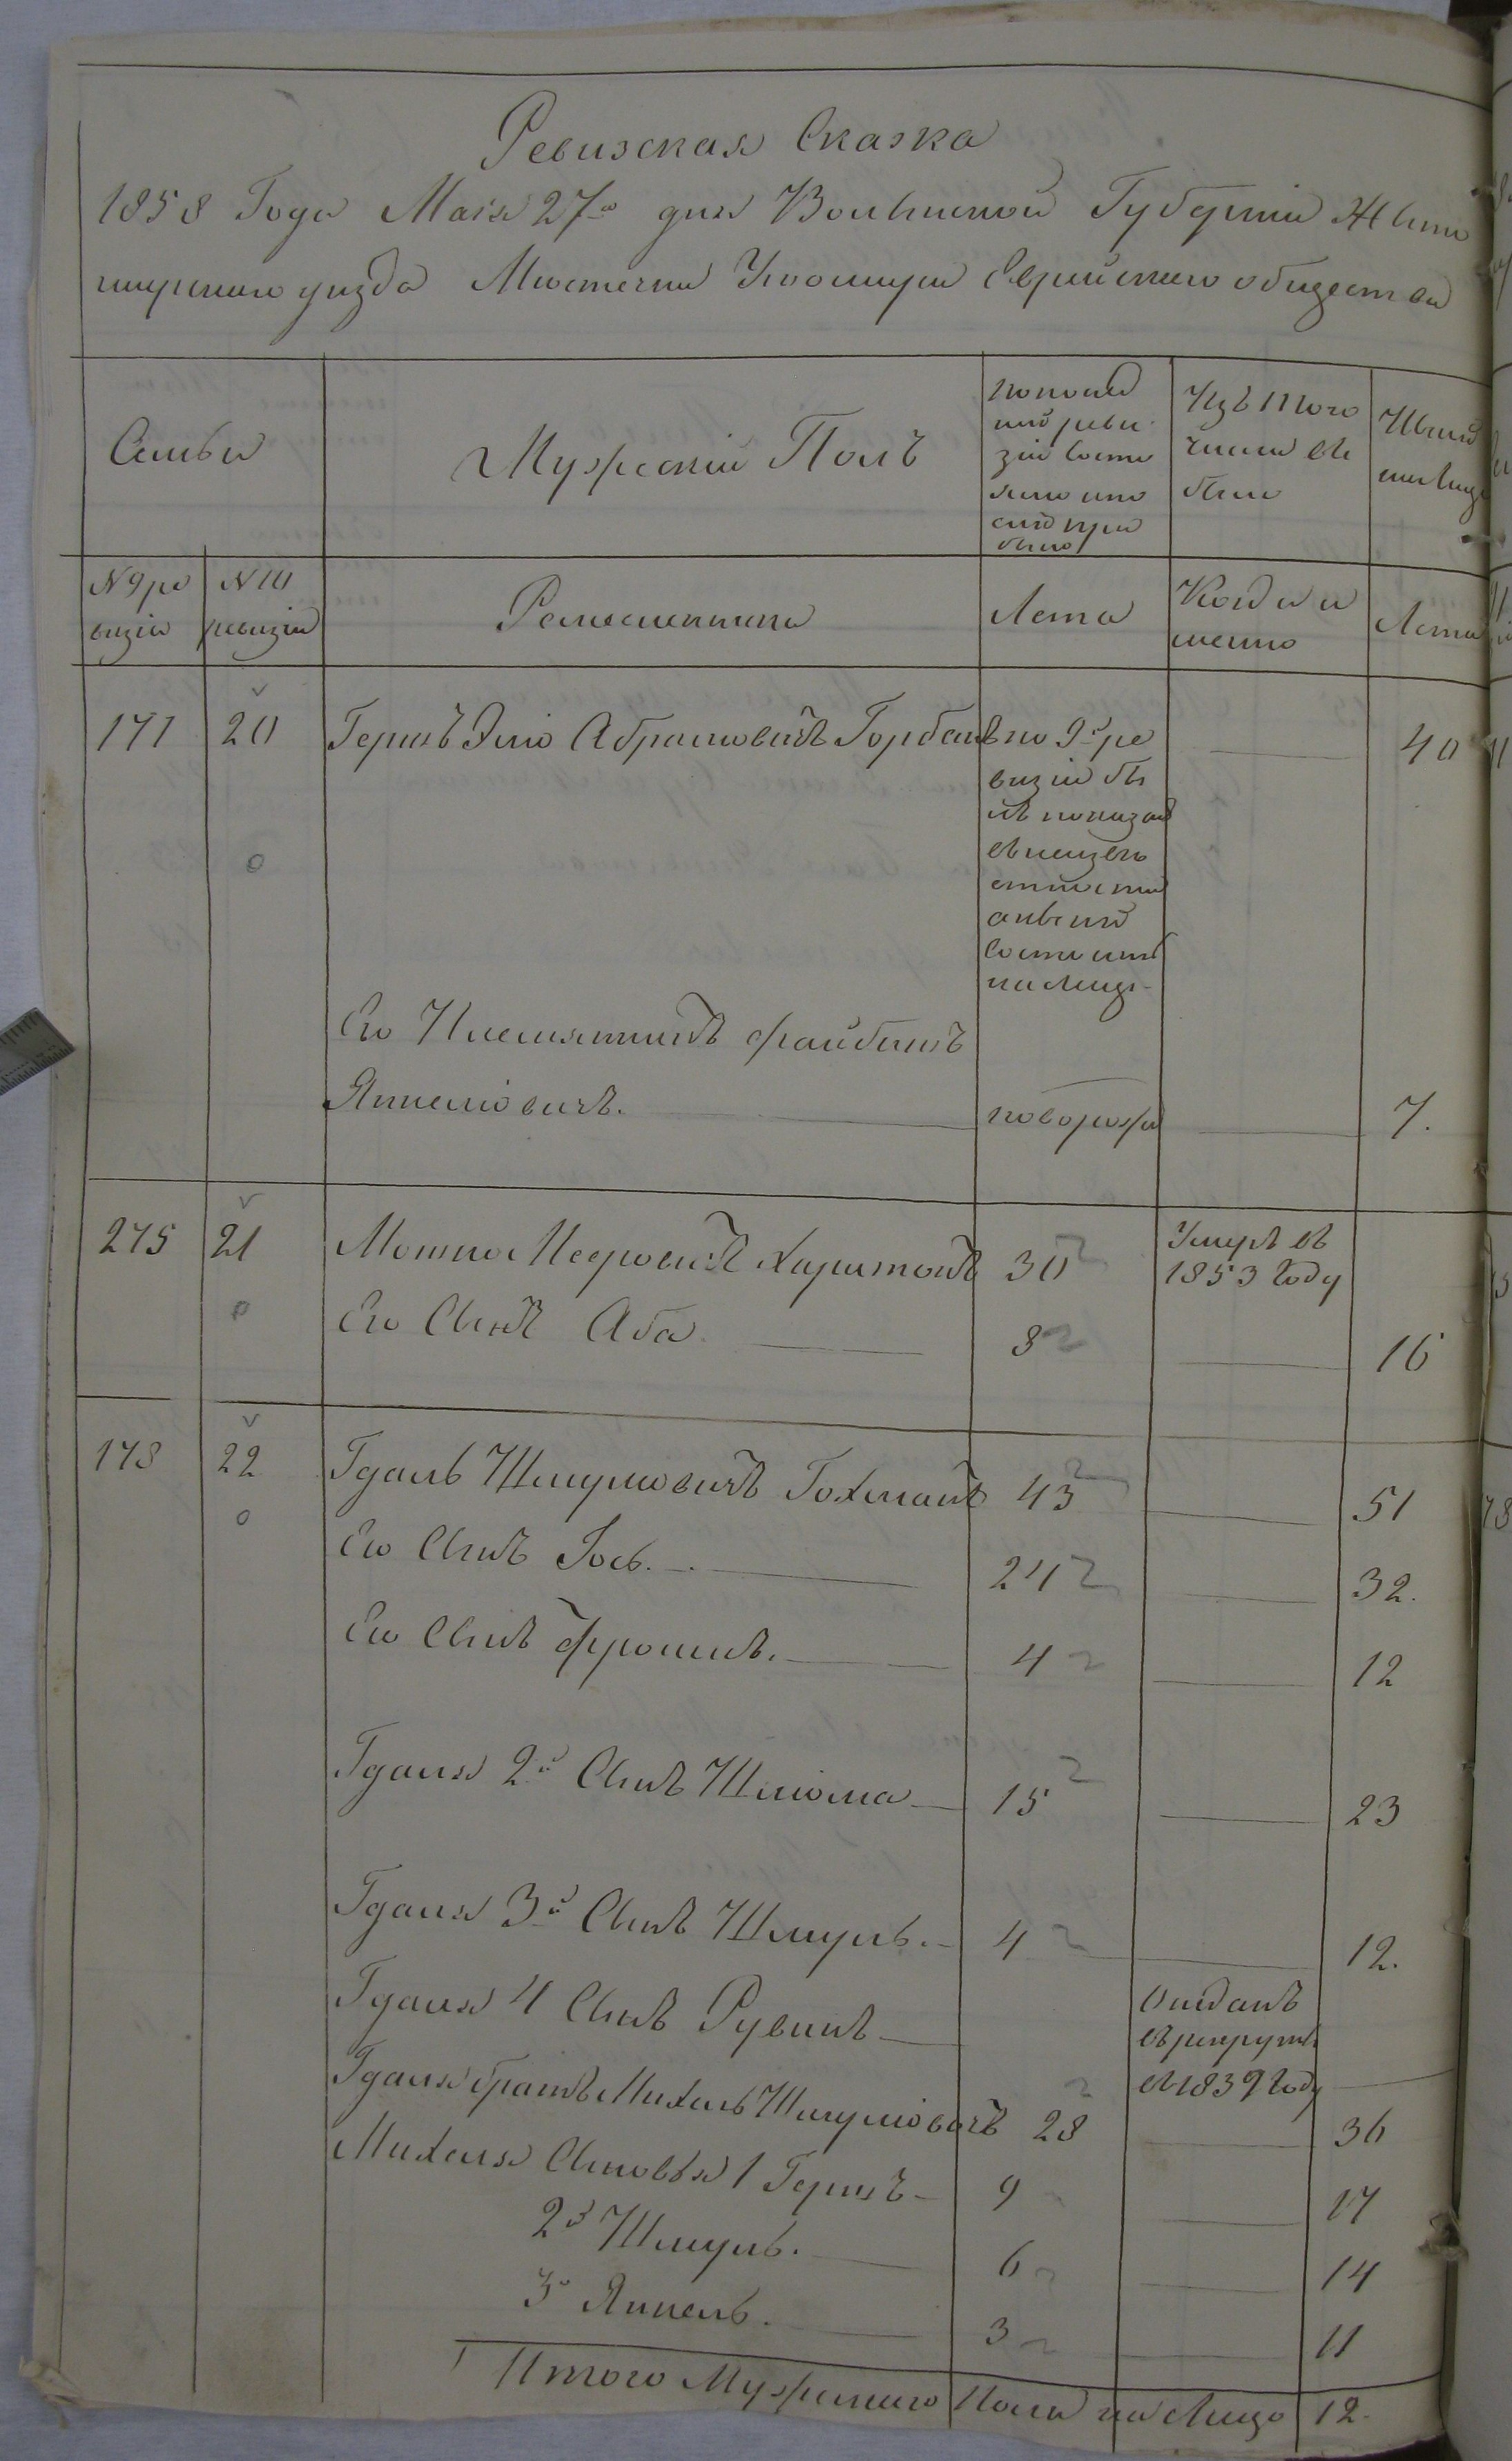 Ревизская Сказка
1858 Года Мая 27го дня Волынской Губерніи Жыто
мирскаго уезда Местечка Ушомира Еврейскаго общества
Семьи
Мужескій Полъ
по послед
ней реви
зіи состо
яло и по
сле при
было
Изъ того
числа вы
было
Ныне
на лицо
N 9 ре
визіи
N 10
ревизіи
Лета
Когда и
менно
Лета
171 20 Гершъ Элио Абрамовичъ Горбанъ по 9й ре 40
визіи бы
лъ показан
въ неизве
стности
а ныне
состоитъ
на лицо
Его Племянникъ Файбишъ
Янкеліовичъ. новорож 7.
275 21 Мошко Мееровичъ Харитонъ 30 Умеръ въ
1853 Году
Его Сынъ Аба 8 16
178 22 Гдаль Шмуліовичъ Гохманъ 43 51
Его Сынъ Іось. 24 32.
Его Сынъ Фроимъ. 4 12
Гдаля 2й Сынъ Шліома 15 23
Гдаля 3й Сынъ Шмуль. 4 12.
Гдаля 4 Сынъ Рувинъ Отданъ
въ рекруты
въ 1839 Году
Гдаля братъ Михель Шмуліовичъ 28 36
Михеля Сыновья 1 Гершъ 9 17
2й Шмуль. 6 14
3й Янкель. 3 11
Итого Мужескаго Пола на Лицо 12.